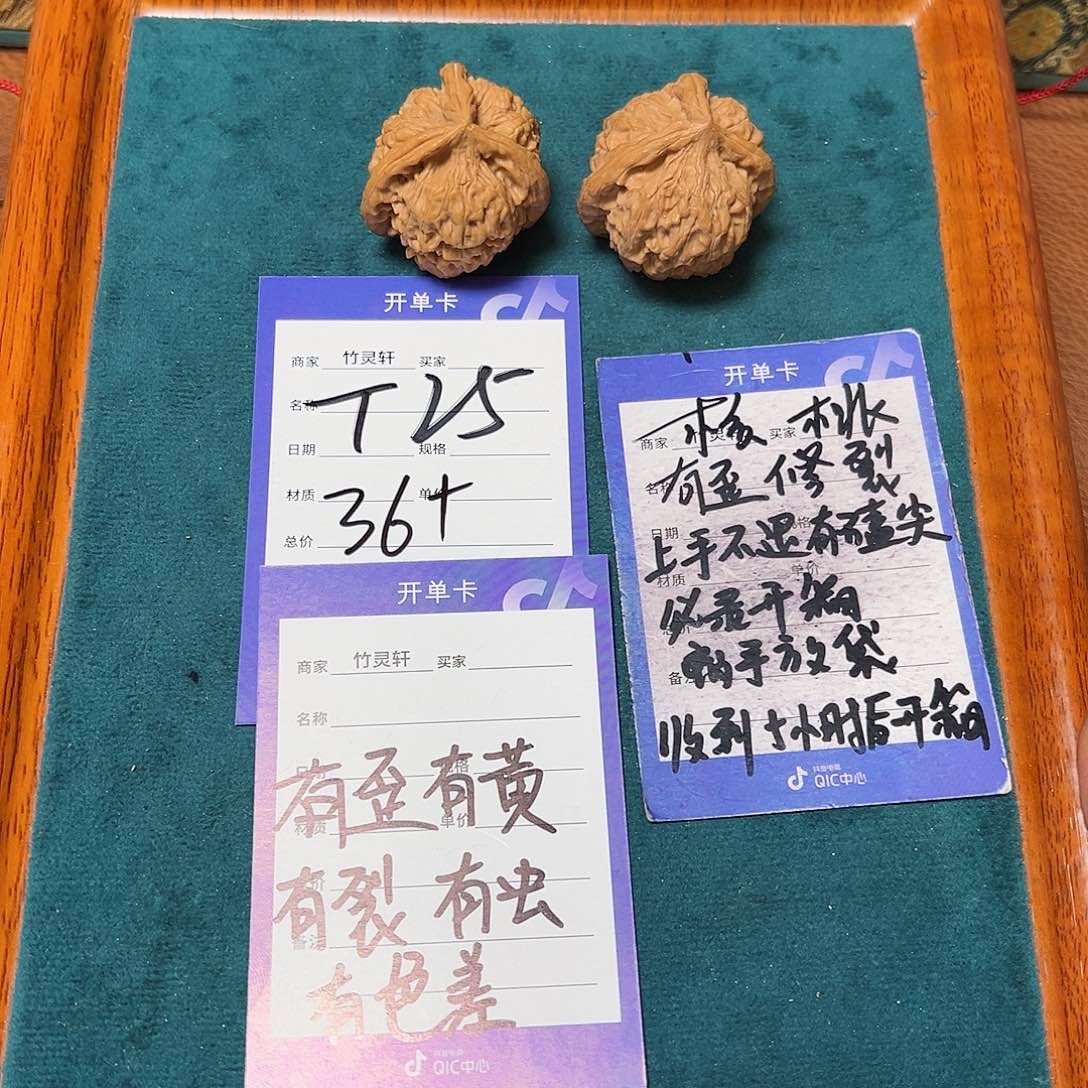 开单卡
商家 竹灵轩 买家
名称
T 25
日期 规格
材质 单价
36+
总价
开单卡
商家 竹灵轩 买家
名称
有歪有黄
材质 单价
有裂 有虫
备注
有色差
抖音电商
QIC中心
开单卡
商家 灵 买家
核桃
名称
有歪修裂
日期 规格
上手不退有磕尖
材质 单价
必录开箱
晒手放袋
备
收到十小时后开箱
抖音电商
QIC中心